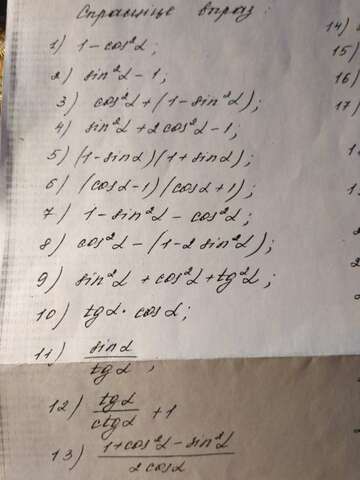 Спростіть вираз:
1) 1-cos²α;
2) sin²α-1;
3) cos²α+(1-sin²α);
4) sin²α+2cos²α-1;
5) (1-sinα)(1+sinα);
6) (cosα-1)(cosα+1);
7) 1-sin²α-cos²α;
8) cos²α-(1-2sin²α);
9) sin²α+cos²α+tg²α;
10) tgα·cosα;
11) sinα/tgα;
12) tgα/ctgα+1
13) (1+cos²α-sin²α)/2cosα
14)
15)
16)
17)